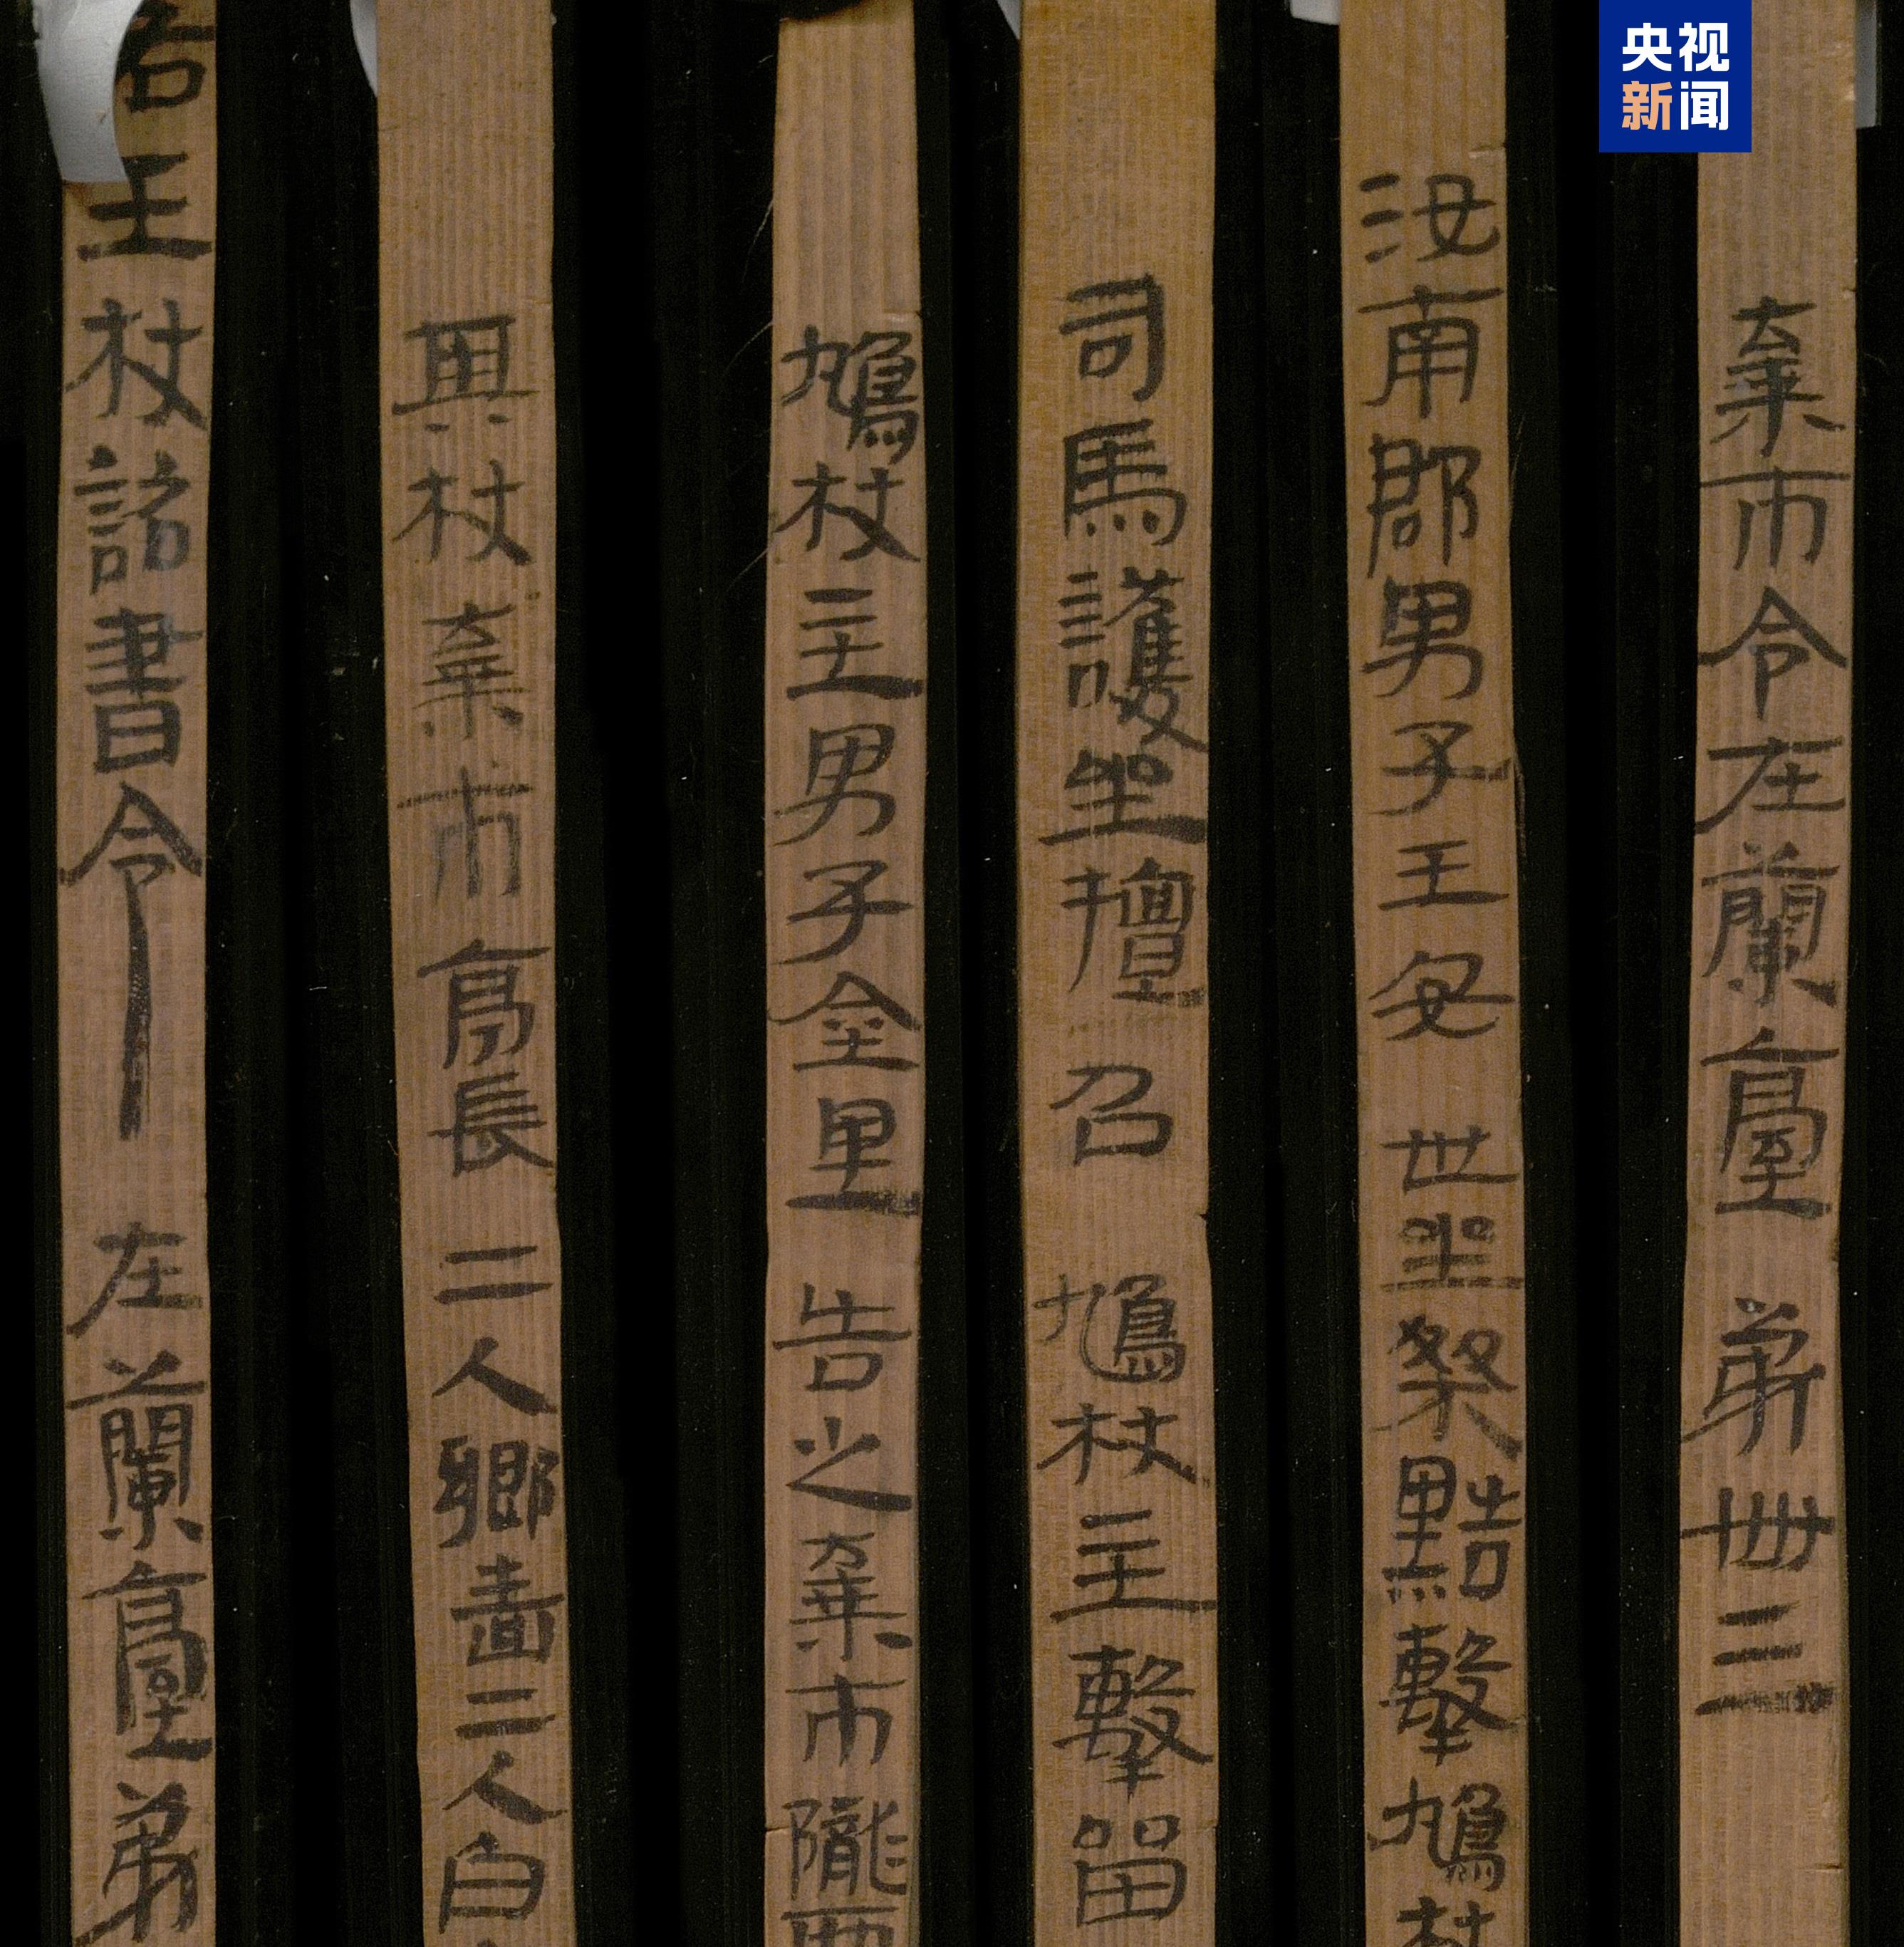 央视
新闻
棄市令在蘭臺弟卌三
汝南郡男子王安世坐桀黠擊鳩杖
司馬護坐擅召鳩杖主擊留
鳩杖主男子金里告之棄市隴西
其杖棄市亭長二人鄉嗇二人白
右王杖詔書令在蘭臺弟